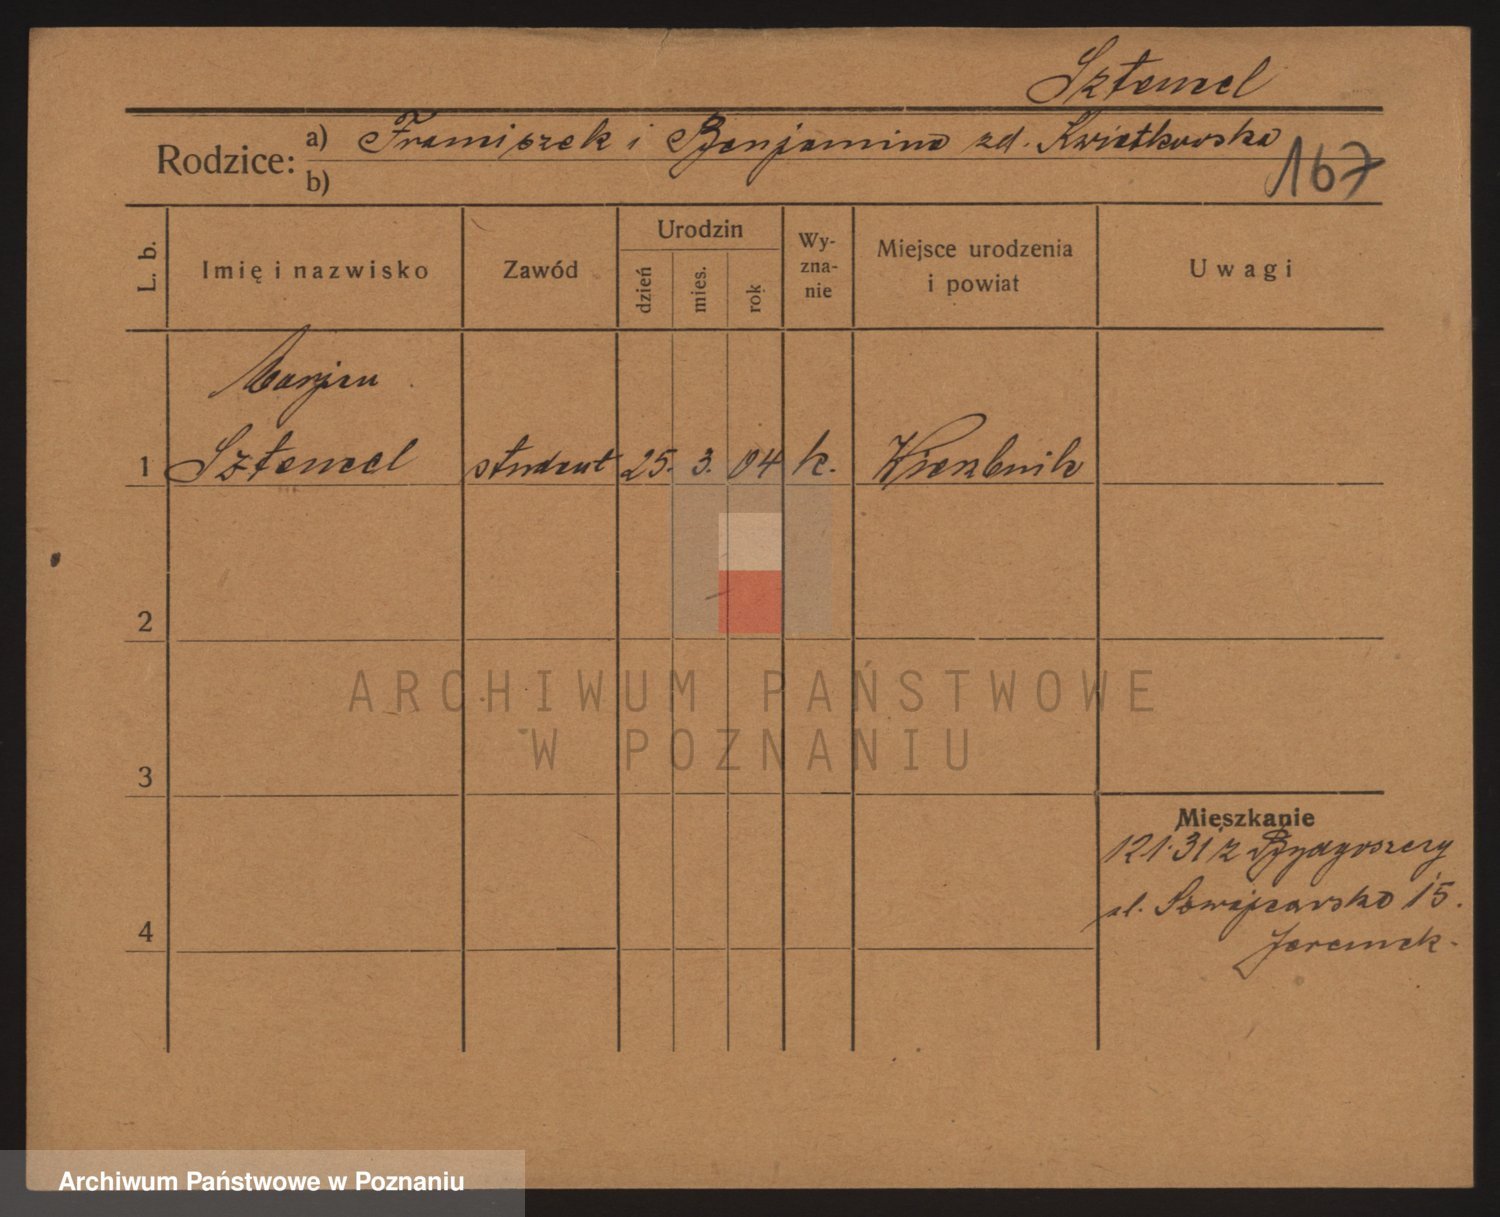 Sztencel
Rodzice: a) Franciszek i Benjamina zd. Kwiatkowska
b)
167
L. b.
Imię i nazwisko
Zawód
Urodzin
dzień
mies.
rok
Wy-
zna-
nie
Miejsce urodzenia
i powiat
Uwagi
Marjan
1 Sztencel student 25. 3. 04 k. Wierzbnik
2
ARCHIWUM PAŃSTWOWE
W POZNANIU
3
Mieszkanie
121.31 z Bydgoszczy
ul. Szwajcarska 15.
4
Archiwum Państwowe w Poznaniu